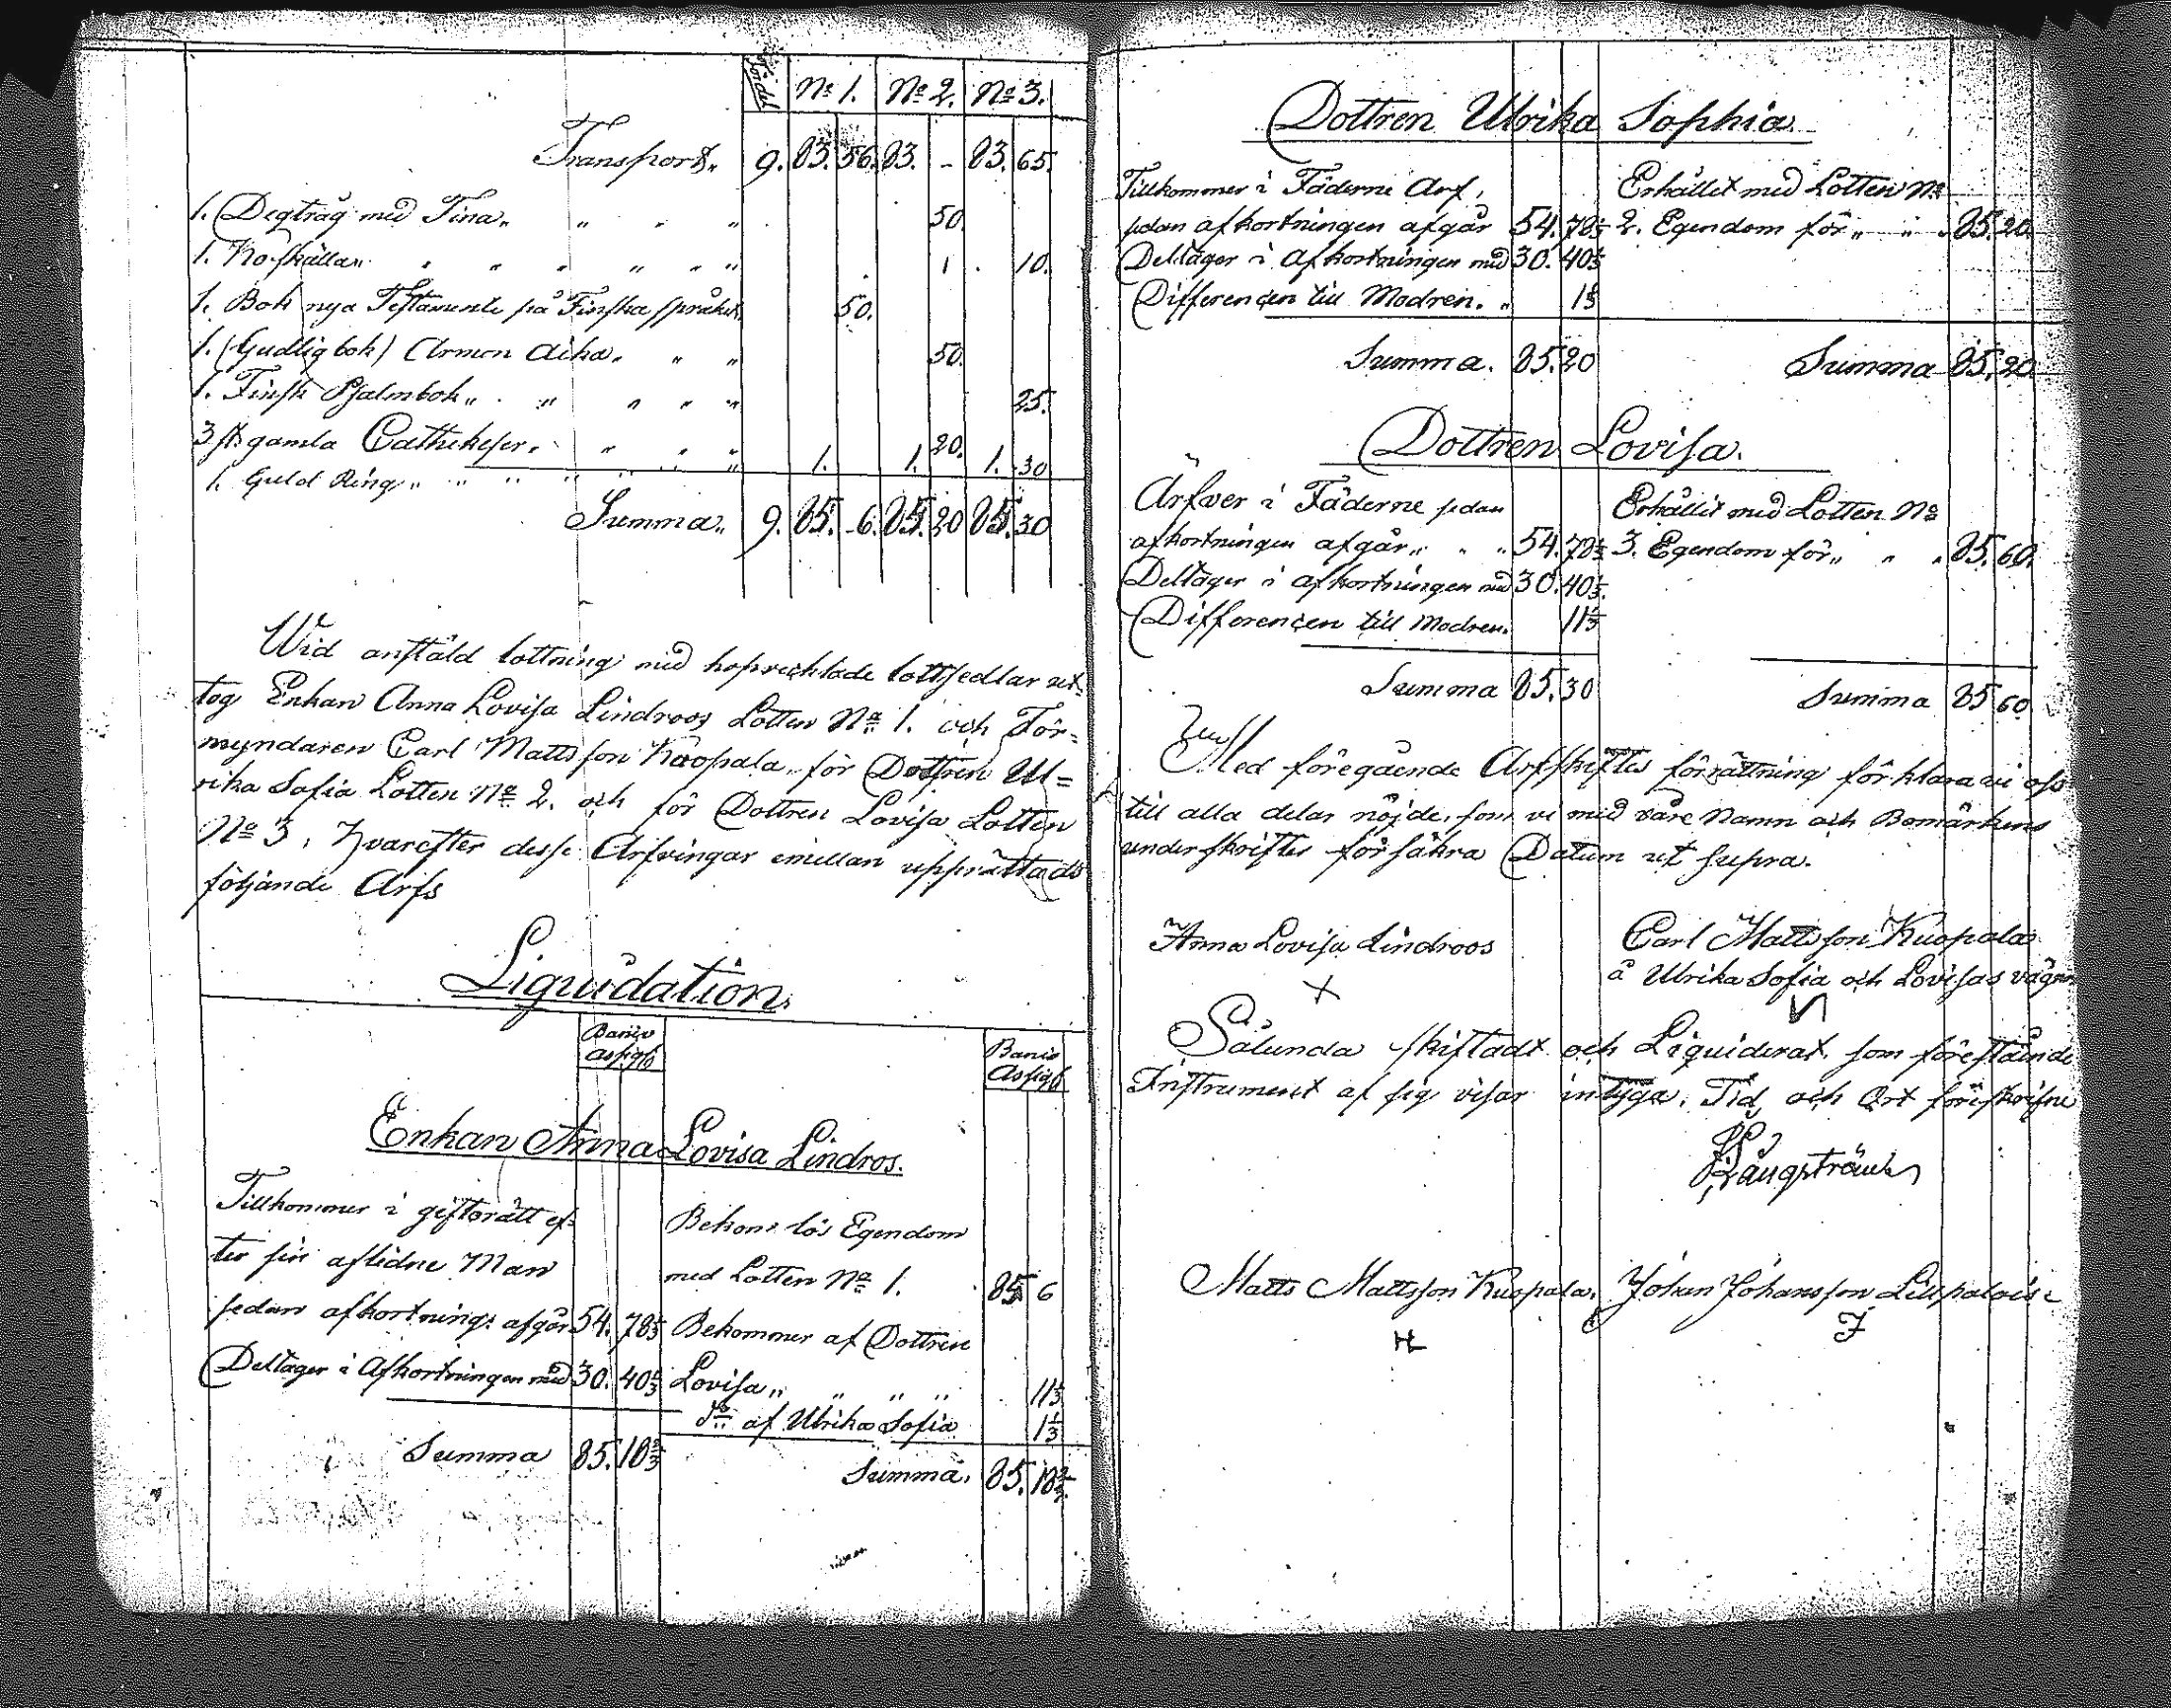 Fördel N° 1. N° 2. N° 3.
Transport,, 9. 83. 56. 83. - 83. 65.
1. Degtråg med Tina,, " " " 50.
1. Koskälla,, " " " " " " 1 . 10.
1. Bok nya Testamente på Finska språket, 50.
1. (Gudlig bok) Armon Aika, " " 50.
1. Finsk Psalmbok,, " " " " 25.
3 st. gamla Cathekeser. " " " 20.
1. Guld Ring,, " " " " " 1. 1. 1. 30
Summa,, 9. 85. 6. 85. 20 85. 30
Wid anstäld lottning med hoprecklade lottsedlar ut-
tog Enkan Anna Lovisa Lindroos Lotten N° 1. och För-
myndaren Carl Mattsson Kuopala, för Dottren Ul=
rika Sofia Lotten N° 2. och för Dottren Lovisa Lotten
N° 3, hvarefter desse Arfvingar emellan upprättades
följande Arfs
Liquidation.
Banco Assigtt Banco Assigtt
Enkan Anna Lovisa Lindros.
Tillkommer i giftorätt ef-
ter sin aflidne Man
sedan afkortning: afgår 54. 78 1/3
Deltager i Afkortningen med 30. 40 1/3
Summa 85. 18 2/3
Bekom: lös Egendom
med Lotten N° 1. 85 6
Bekommer af Dottren
Lovisa,, " " " 11 1/3
d:o af Ulrika Sofia 1 1/3
Summa. 85. 18 2/3
Dottren Ulrika Sophia
Tillkommer i Fäderne Arf,
sedan afkortningen afgår 54. 78 1/3
Deltager i afkortningen med 30. 40 1/3
Differencen till Modren. " 1 1/3
Summa. 85. 20
Erhållit med Lotten N°
2. Egendom för,, " " 85. 20.
Summa 85. 20.
Dottren Lovisa.
Ärfver i Fäderne sedan
afkortningen afgår,, " " 54. 78 1/3
Deltager i afkortningen med 30. 40 1/3.
Differencen till Modren. 11 1/3
Summa 85. 30
Erhållit med Lotten N°
3. Egendom för,, " " 85. 60.
Summa 85 60
Med föregående Arfskiftes förrättning förklara vi oss
till alla delar nöjde, som vi med våre Namn och Bomärkens
underskrifter försäkra Datum ut supra.
Anna Lovisa Lindroos
X
Carl Mattsson Kuopala
å Ulrika Sofia och Lovisas vägnar
Sålunda skiftadt och Liquiderat, som föreståénde
Instrument af sig visar intyga. Tid och Ort föreskrifne
Långström
Matts Mattsson Kuopala. Johan Johansson Lillpalois:
H J